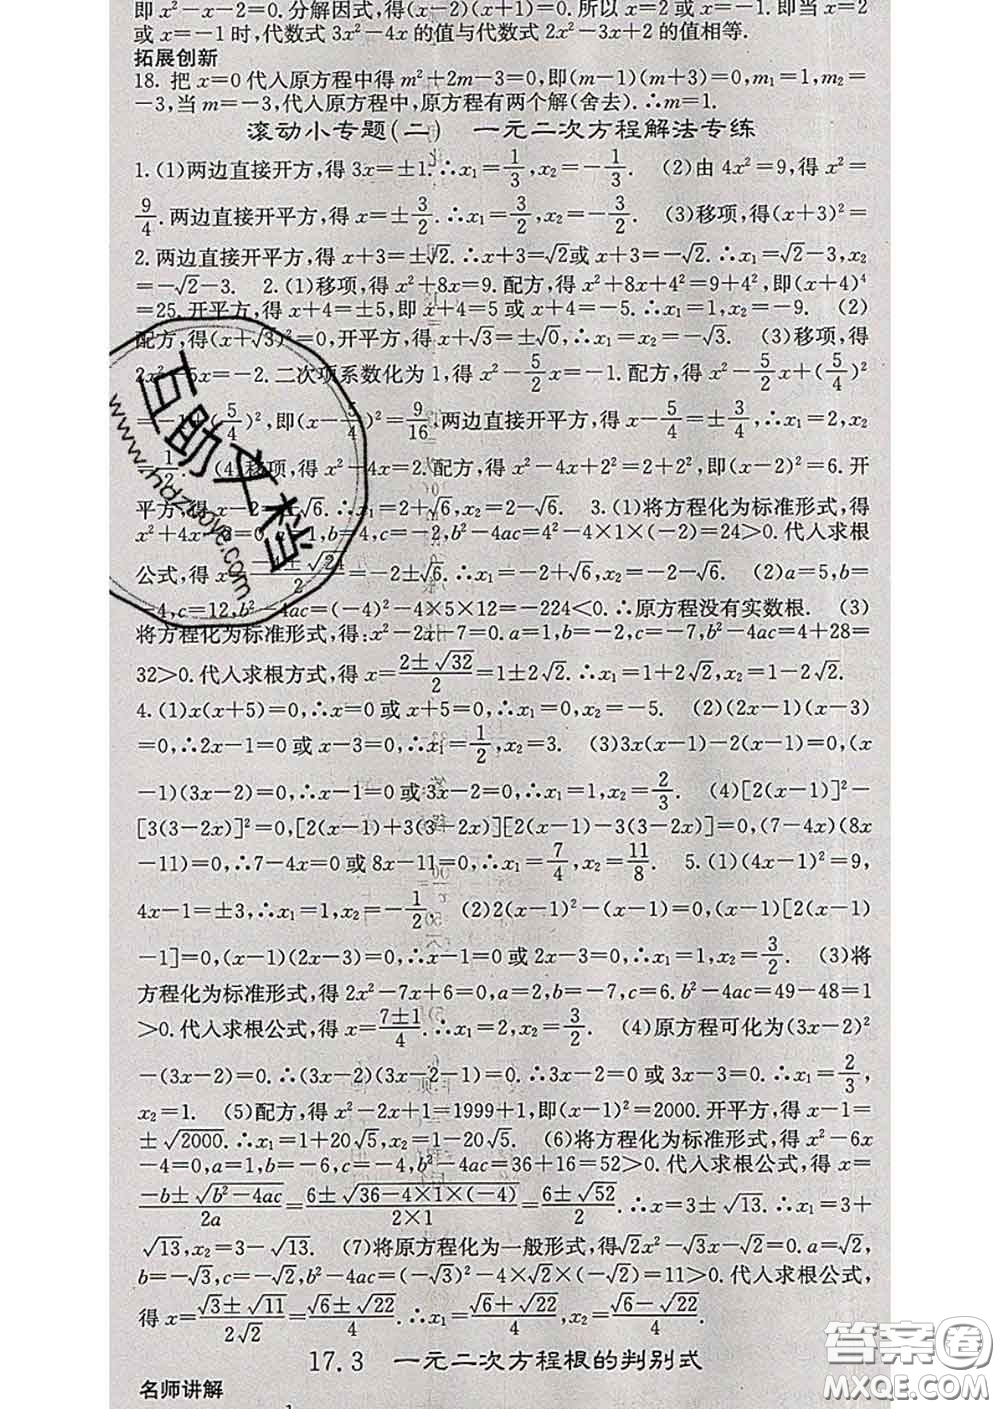 即 x²-x-2=0. 分解因式,得(x-2)(x+1)=0. 所以 x=2 或 x=-1. 即当 x=2
或 x=-1 时,代数式 3x²-4x 的值与代数式 2x²-3x+2 的值相等.
拓展创新
18. 把 x=0 代入原方程中得 m²+2m-3=0,即(m-1)(m+3)=0,m₁=1,m₂=
-3,当 m=-3,代入原方程中,原方程有两个解(舍去). ∴m=1.
滚动小专题(二) 一元二次方程解法专练
1. (1)两边直接开方,得 3x=±1. ∴x₁=1/3,x₂=-1/3. (2)由 4x²=9,得 x²=
9/4. 两边直接开平方,得 x=±3/2. ∴x₁=3/2,x₂=-3/2. (3)移项,得(x+3)²=
2. 两边直接开平方,得 x+3=±√2. ∴x+3=√2或 x+3=-√2. ∴x₁=√2-3,x₂
=-√2-3. 2. (1)移项,得 x²+8x=9. 配方,得 x²+8x+4²=9+4²,即(x+4)⁴
=25. 开平方,得 x+4=±5,即 x+4=5 或 x+4=-5. ∴x₁=1,x₂=-9. (2)
配方,得(x+√3)²=0,开平方,得 x+√3=±√0,∴x₁=x₂=-√3. (3)移项,得
2x²-5x=-2. 二次项系数化为 1,得 x²-5/2x=-1. 配方,得 x²-5/2x+(5/4)²
(5/4)²,即(x-5/4)²=9/16. 两边直接开平方,得 x-5/4=±3/4,∴x₁=2,x₂
=1/2. (4)移项,得 x²-4x=2. 配方,得 x²-4x+2²=2+2²,即(x-2)²=6. 开
平方,得 x-2=±√6. ∴x₁=2+√6,x₂=2-√6. 3. (1)将方程化为标准形式,得
x²+4x-2=0,a=1,b=4,c=-2,b²-4ac=4²-4×1×(-2)=24>0. 代入求根
公式,得 x=(-4±√24)/2=-2±√6. ∴x₁=-2+√6,x₂=-2-√6. (2)a=5,b=
-4,c=12,b²-4ac=(-4)²-4×5×12=-224<0. ∴原方程没有实数根. (3)
将方程化为标准形式,得:x²-2x-7=0. a=1,b=-2,c=-7,b²-4ac=4+28=
32>0. 代入求根方式,得 x=(2±√32)/2=1±2√2. ∴x₁=1+2√2,x₂=1-2√2.
4. (1)x(x+5)=0,∴x=0 或 x+5=0,∴x₁=0,x₂=-5. (2)(2x-1)(x-3)
=0,∴2x-1=0 或 x-3=0,∴x₁=1/2,x₂=3. (3)3x(x-1)-2(x-1)=0,(x
-1)(3x-2)=0,∴x-1=0 或 3x-2=0,∴x₁=1,x₂=2/3. (4)[2(x-1)]²-
[3(3-2x)]²=0,[2(x-1)+3(3-2x)][2(x-1)-3(3-2x)]=0,(7-4x)(8x
-11)=0,∴7-4x=0 或 8x-11=0,∴x₁=7/4,x₂=11/8. 5. (1)(4x-1)²=9,
4x-1=±3,∴x₁=1,x₂=-1/2. (2)2(x-1)²-(x-1)=0,(x-1)[2(x-1)
-1]=0,(x-1)(2x-3)=0,∴x-1=0 或 2x-3=0,∴x₁=1,x₂=3/2. (3)将
方程化为标准形式,得 2x²-7x+6=0,a=2,b=-7,c=6. b²-4ac=49-48=1
>0. 代入求根公式,得 x=(7±1)/4. ∴x₁=2,x₂=3/2. (4)原方程可化为(3x-2)²
-(3x-2)=0. ∴(3x-2)(3x-2-1)=0. ∴3x-2=0 或 3x-3=0. ∴x₁=2/3,
x₂=1. (5)配方,得 x²-2x+1=1999+1,即(x-1)²=2000. 开平方,得 x-1=
±√2000. ∴x₁=1+20√5,x₂=1-20√5. (6)将方程化为标准形式,得 x²-6x
-4=0,a=1,b=-6,c=-4,b²-4ac=36+16=52>0. 代入求根公式,得 x=
(-b±√(b²-4ac))/2a=(6±√(36-4×1×(-4)))/(2×1)=(6±√52)/2. ∴x=3±√13. ∴x₁=3+
√13,x₂=3-√13. (7)将原方程化为一般形式,得√2x²-√3x-√2=0. a=√2,
b=-√3,c=-√2,b²-4ac=(-√3)²-4×√2×(-√2)=11>0. 代入求根公式,
得 x=(√3±√11)/2√2=(√6±√22)/4. ∴x₁=(√6+√22)/4,x₂=(√6-√22)/4.
17.3 一元二次方程根的判别式
名师讲解
互助文档
www.hdzuoye.com
答案圈
MXQE.COM